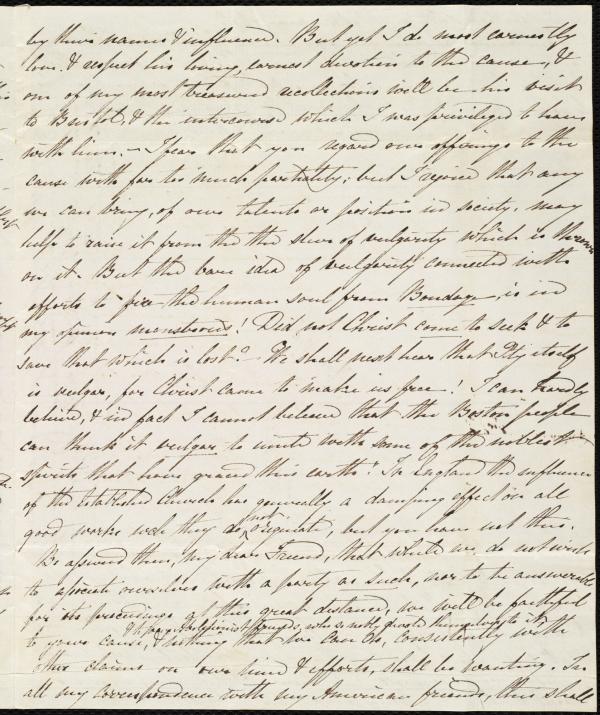 by their names & influence. But yet I do most earnestly
love & respect his living, earnest devotion to the cause, &
one of my most treasured recollections will be his visit
to Bristol, & the intercourse which I was privileged to have
with him. – I fear that you regard our offerings to the
cause with far too much partiality; but I rejoice that any
we can bring, of our talents or position in society, may
help to raise it from the the slur of vulgarity which is thrown
on it. But the bare idea of vulgarity connected with
efforts to free the human soul from Bondage, is in
my opinion monstrous! Did not Christ come to seek & to
save that which is lost? We shall next hear that Pity itself
is vulgar, for Christ came to make us free! I can hardly
believe, & in fact I cannot believe that the Boston people
can think it vulgar to unite with some of the noblest
spirits that have graced this earth! In England the influence
of the Established Church has generally a damping effect on all
good works wch they do not originate, but you have not this.
Be assured then, my dear Friend, that while we do not wish
to associate ourselves with a party as such, nor to be answerable
for its proceedings at this great distance, we will be faithful
to your cause, & nothing that we can do, consistently with
other claims on our time & efforts, shall be wanting. In
all my correspondence with my American friends, this shall